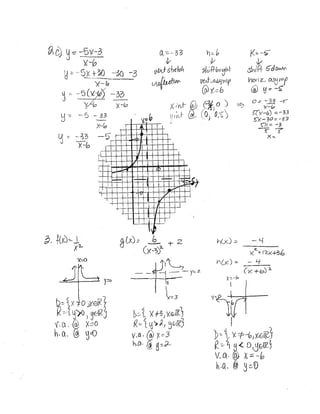 2.c) y = -5x-3 / x-6
y = -5x+30 -30 -3 / x-6
y = -5(x-6) / x-6 -33 / x-6
y = -5 - 33 / x-6
y = -33 / x-6 -5
a = -33
vert stretch
reflection
h=6
shift 6 right
vert. asymp
@ x=6
k=-5
shift 5 down
horiz. asymp
@ y = -5
x int @ ( , 0)
y int @ (0, 0.5)
⇒ 0 = -33 / x-6 -5
5(x-6) = -33
5x-30 = -33
5x = -3
x=
x=6
3. f(x)= 1 / x²
x=0
y=0
D={x≠0, x∈R}
R={y>0, y∈R}
v.a. @ x=0
h.a. @ y=0
g(x)= 6 / (x-3)² + 2
x=3
D={ x≠3, x∈R}
R={y>2, y∈R}
v.a. @ x=3
h.a. @ y=2
h(x) = -4 / x²+12x+36
h(x) = -4 / (x+6)²
x=-6
D={ x≠-6, x∈R}
R={ y<0, y∈R}
v.a. @ x=-6
h.a. @ y=0